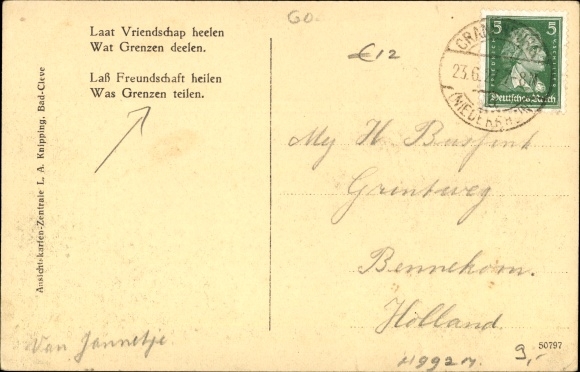 Laat Vriendschap heelen
Wat Grenzen deelen.
Laß Freundschaft heilen
Was Grenzen teilen.
Ansichtskarten-Zentrale L. A. Knipping, Bad-Cleve
Van Jannetje
60.
€12
5 5
Deutsches Reich
CRAN
23.6. 8
(NIEDERRH
Mej H
Grintweg
Bennekom.
Holland.
50797
9,-